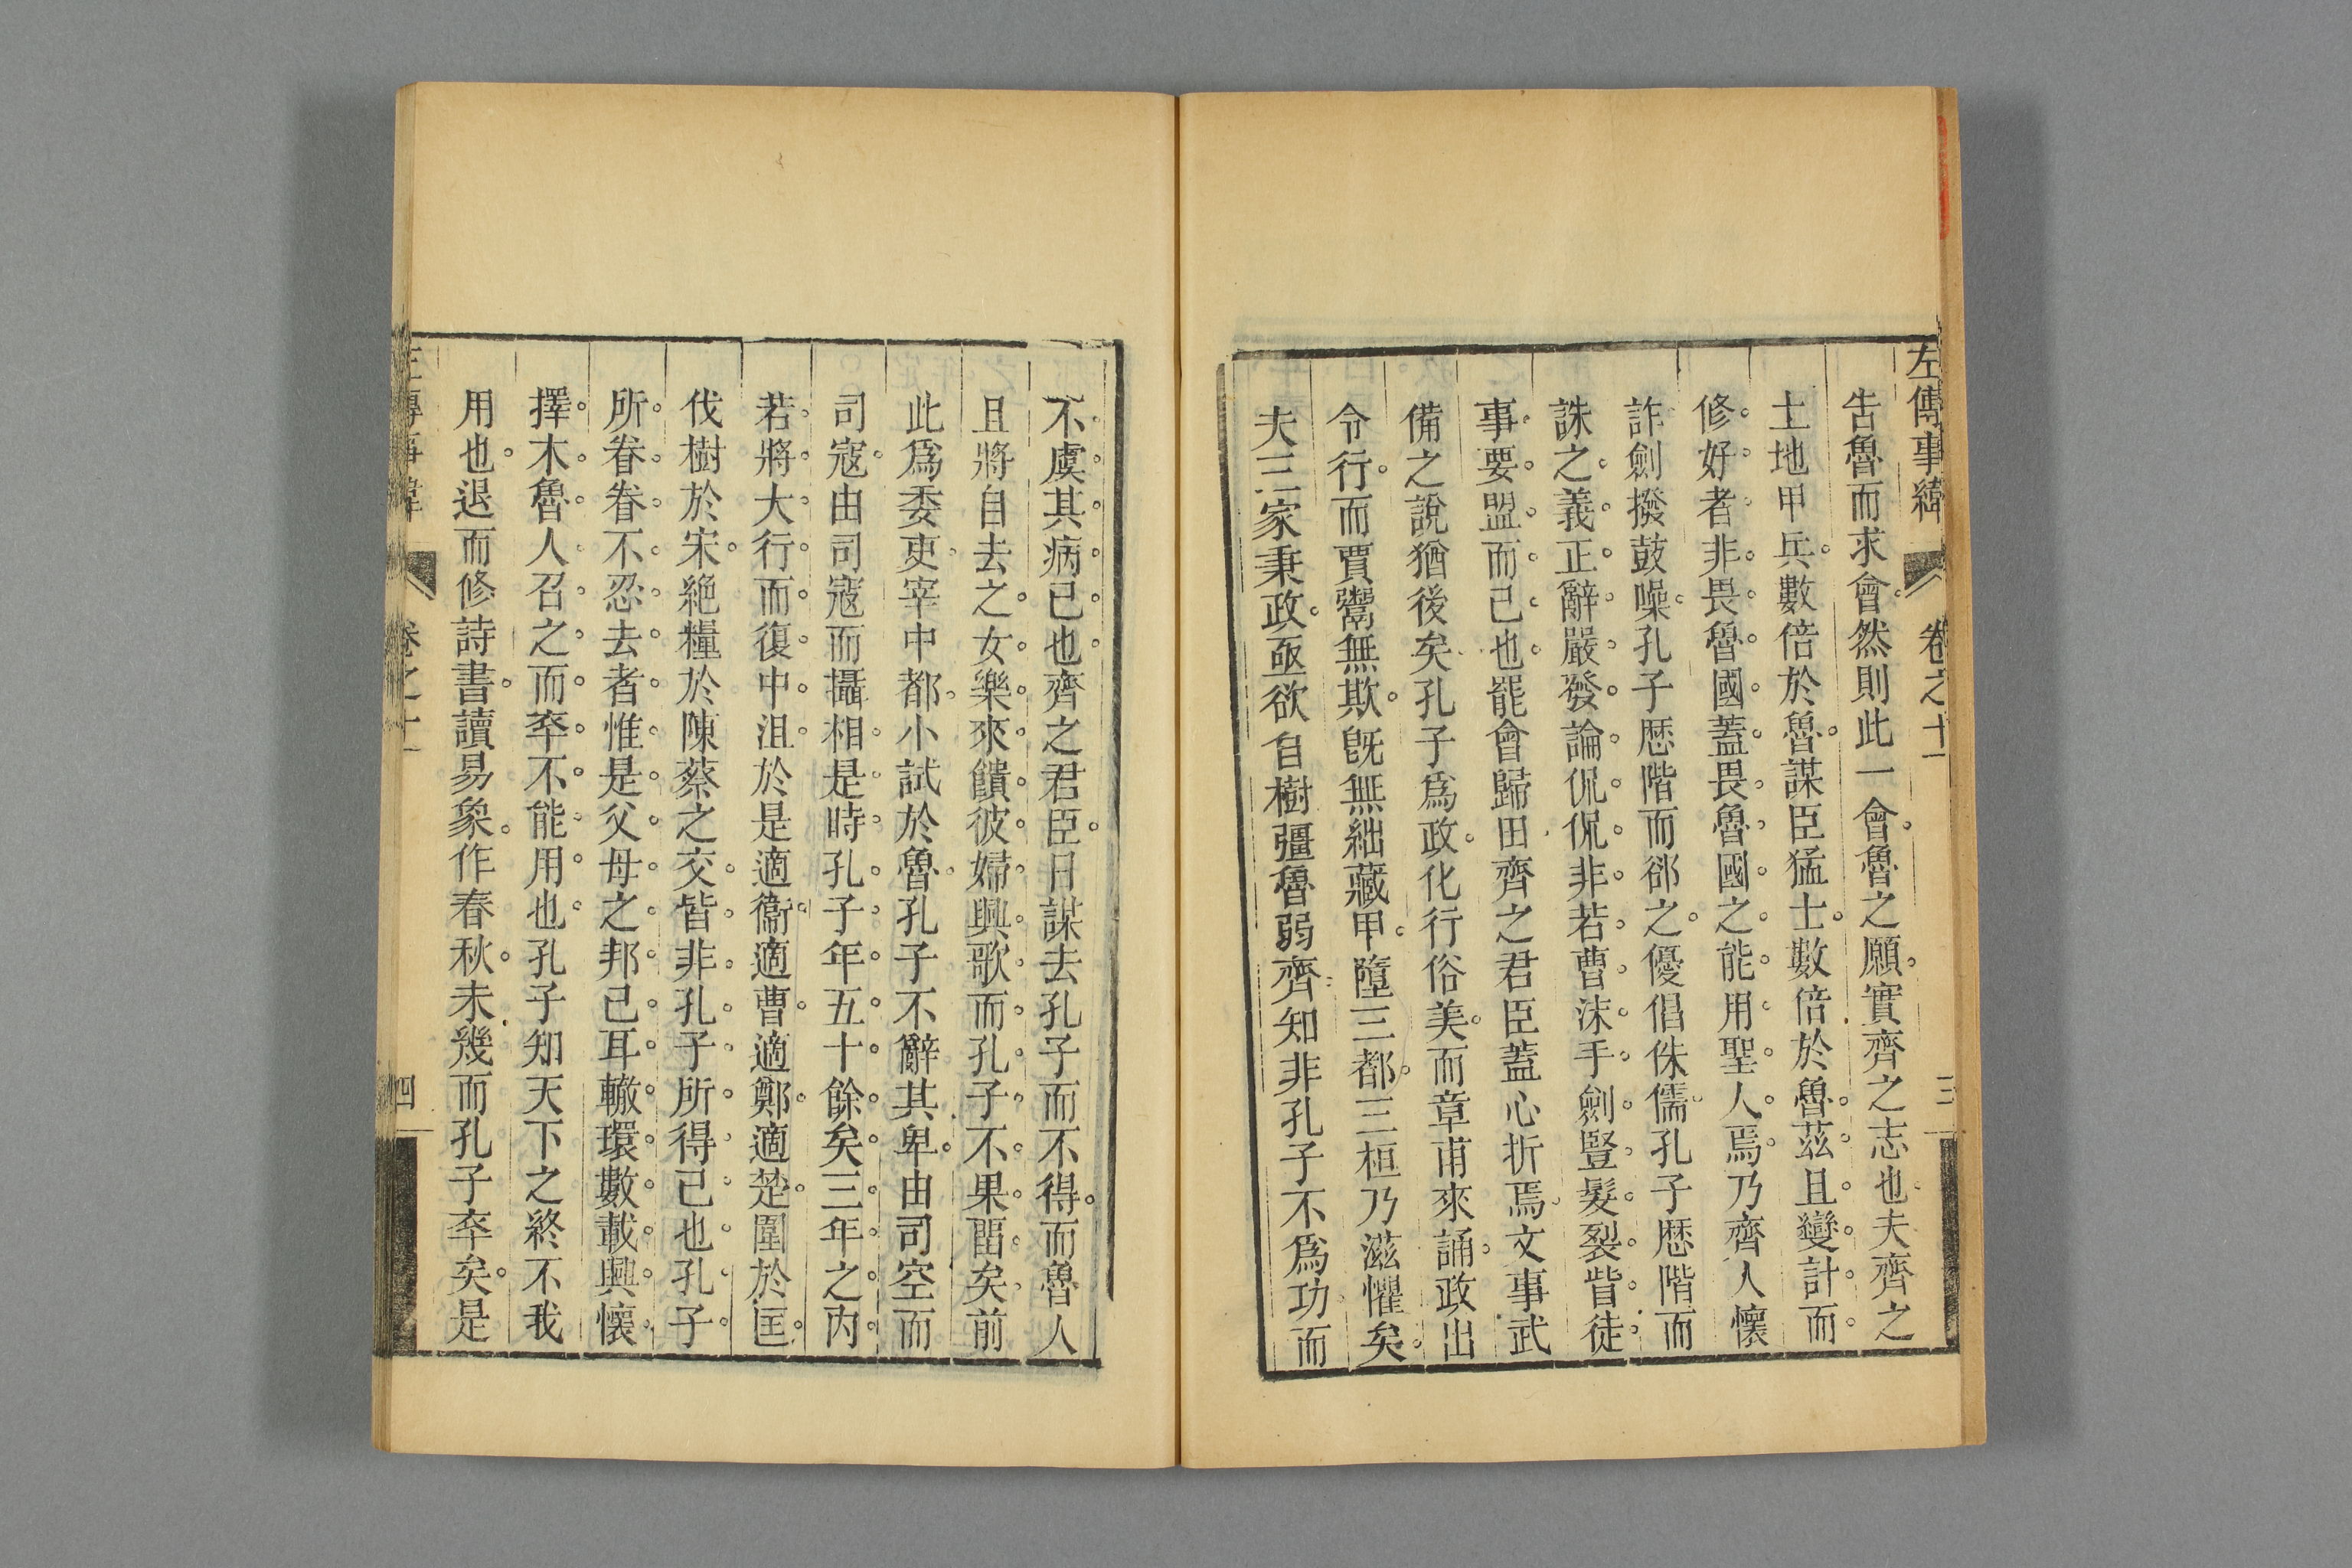 左傳事緯 卷之十一 三
告魯而求會然則此一會魯之願實齊之志也夫齊之
土地甲兵數倍於魯謀臣猛士數倍於魯茲且變計而
修好者非畏魯國蓋畏魯國之能用聖人焉乃齊人懷
詐劍撥鼓噪孔子歷階而郤之優倡侏儒孔子歷階而
誅之義正辭嚴發論侃侃非若曹沫手劍豎髮裂眥徒
事要盟而已也罷會歸田齊之君臣蓋心折焉文事武
備之說猶後矣孔子爲政化行俗美而章甫來誦政出
令行而賈鬻無欺旣無絀藏甲墮三都三桓乃滋懼矣
夫三家秉政亟欲自樹彊魯弱齊知非孔子不爲功而
不虞其病己也齊之君臣日謀去孔子而不得而魯人
且將自去之女樂來饋彼婦興歌而孔子不果畱矣前
此爲委吏宰中都小試於魯孔子不辭其卑由司空而
司寇由司寇而攝相是時孔子年五十餘矣三年之內
若將大行而復中沮於是適衞適曹適鄭適楚圍於匡
伐樹於宋絕糧於陳蔡之交皆非孔子所得已也孔子
所眷眷不忍去者惟是父母之邦已耳轍環數載興懷
擇木魯人召之而卒不能用也孔子知天下之終不我
用也退而修詩書讀易象作春秋未幾而孔子卒矣是
左傳事緯 卷之十一 四